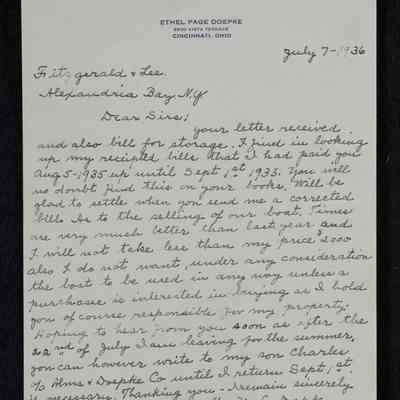 ETHEL PAGE DOEPKE
VISTA TERRACE
CINCINNATI, OHIO
July 7-1936
Fitzgerald & Lee.
Alexandria Bay N.Y
Dear Sirs;
your letter received
and also bill for storage. I find in looking
up my recipted bills that I had paid you
Aug 5-1935 up until Sept 1st 1935. You will
no doubt find this on your books. Will be
glad to settle when you send me a corrected
bill. As to the selling of our boat. Times
are very much better than last year and
I will not take less than my price $2000
also I do not want, under any consideration
the boat to be used in any way unless a
purchaser is interested in buying as I hold
you of course responsible for my property.
Hoping to hear from you soon as after the
22nd of July I am leaving for the summer.
you can however write to my son Charles
c/o Alms & Doepke Co until I return Sept 1st.
if necessary. Thanking you - I remain sincerely
Doepke